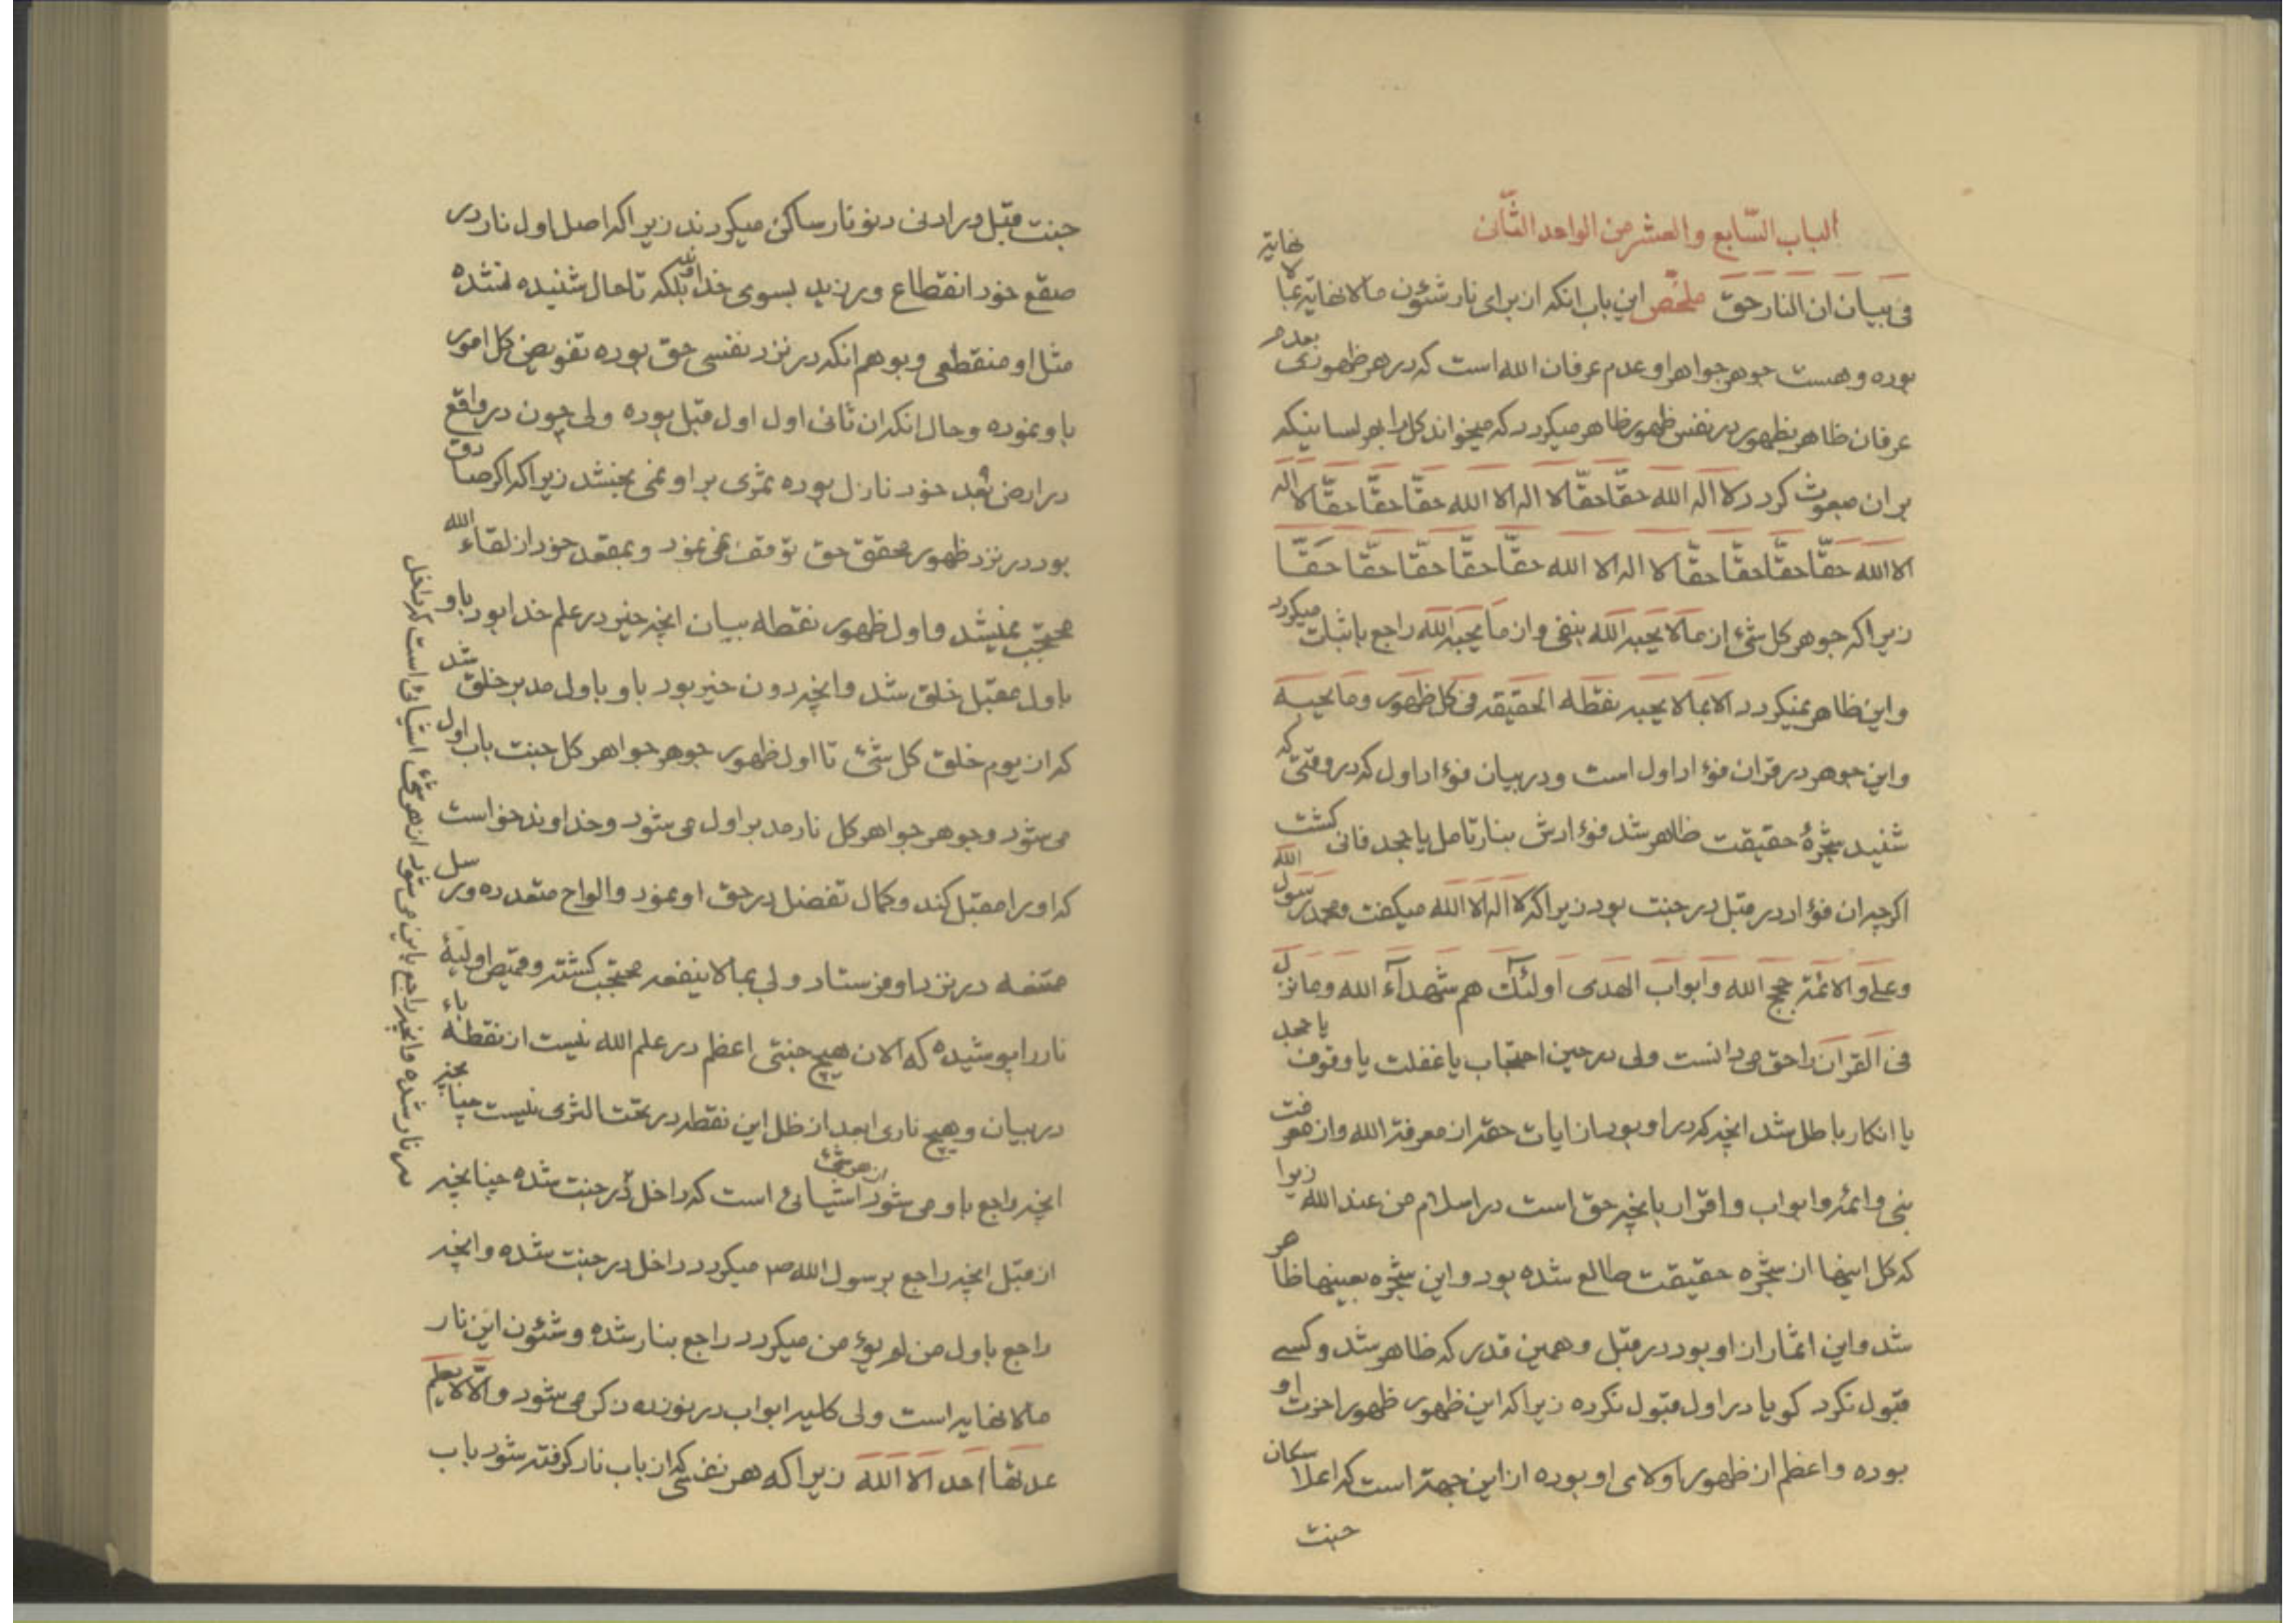 الباب السّابع والعشر من الواحد الثّانی
فی بیان ان النار حق ملخّص این باب انکه از برای نار شئون مالانهایة عما لا نهایة
بوده و هست جوهر جواهر او عدم عرفان الله است که در هر ظهوری بعدم
عرفان ظاهر بظهور در نفس ظهور ظاهر میکردد که میخواند کل را بهر لسانیکه
بر ان مبعوث کردد لا اله الا الله حقّا حقّا لا اله الا الله حقّا حقّا حقّا لا اله
الا الله حقّا حقّا حقّا حقّا لا اله الا الله حقّا حقّا حقّا حقّا حقّا
زیرا که جوهر کل شئ از ما لا یحبه الله بنفی و از ما یحبه الله راجع باثبات میکردد
و این ظاهر نمیکردد الا بما لا یحبه نقطه الحقیقه فی کل ظهور و ما یحبه
و این جوهر در قران فؤاد اول است و در بیان فؤاد اول که در وقتی که
شنید شجرهٔ حقیقت ظاهر شد فؤادش بنار تامل یا جحد فانی کشت
اکرچه ان فؤاد در قبل در جنت بود زیرا که لا اله الا الله میکفت و محمد رسول الله
و علی و الائمة حجج الله و ابواب الهدی اولئک هم شهداء الله و ما نزل
فی القران را حق میدانست ولی در حین احتجاب یا غفلت یا وقوف یا جحد
یا انکار باطل شد انچه که در او بود از ایات حقه از معرفة الله و از معرفت
نبی و ائمه و ابواب و اقرار بانچه حق است در اسلام من عند الله زیرا
که کل اینها از شجره حقیقت طالع شده بود و این شجره بعینها ظاهر
شد و این اثمار از او بود در قبل و همین قدر که ظاهر شد و کسی
قبول نکرد کویا در اول قبول نکرده زیرا که این ظهور ظهور اخرت او
بوده و اعظم از ظهور اولای او بوده از این جهة است که اعلا سکان
جنت
جنت قبل در ادنی دنو نار ساکن میکردند زیرا که اصل اول نار در
صقع خود انقطاع ورزید بسوی خداوند بلکه تا حال شنیده نشده
مثل او منقطعی و بوهم انکه در نزد نفسی حق بوده تفویض کل امور
باو نموده و حال انکه ان ثانی اول اول قبل بوده ولی چون در واقع
در ارض بعد خود نازل بوده ثمری بر او نمی بخشد زیرا که اکر صادق
بود در نزد ظهور محقق حق توقف نمی نمود و بمقعد خود از لقاء الله
محتجب نمیشد و اول ظهور نقطه بیان انچه خیر در علم خدا بود باو
باول مقبل خلق شد و انچه دون خیر بود باو باول مدبر خلق شد
که از یوم خلق کل شئ تا اول ظهور جوهر جواهر کل جنت باب اول
میشود و جوهر جواهر کل نار مدبر اول می شود و خداوند خواست
که او را مقبل کند و کمال تفضل در حق او نمود و الواح متعدده و رسل
متقنه در نزد او فرستاد ولی بما لا ینفعه محتجب کشته و قمیص اولیهٔ
نار را پوشیده که الان هیچ جنتی اعظم در علم الله نیست از نقطهٔ بدء
در بیان و هیچ ناری ابعد از ظل این نقطه در تحت الثری نیست چنانچه
انچه راجع باو می شود از هر شئ اشیائی است که داخل در جنت شده چنانچه
از قبل انچه راجع برسول الله ص میکردد داخل در جنت شده و انچه
راجع باول من لم یؤمن میکردد راجع بنار شده و شئون این نار
مالانهایه است ولی کلیه ابواب در نوزده ذکر می شود و الا لا یعلم
عدتها احد الا الله زیرا که هر نفسی که از باب نار کرفته شود باب
از هر شئ اشیائی است که داخل
در نار شده و انچه راجع باین می شود